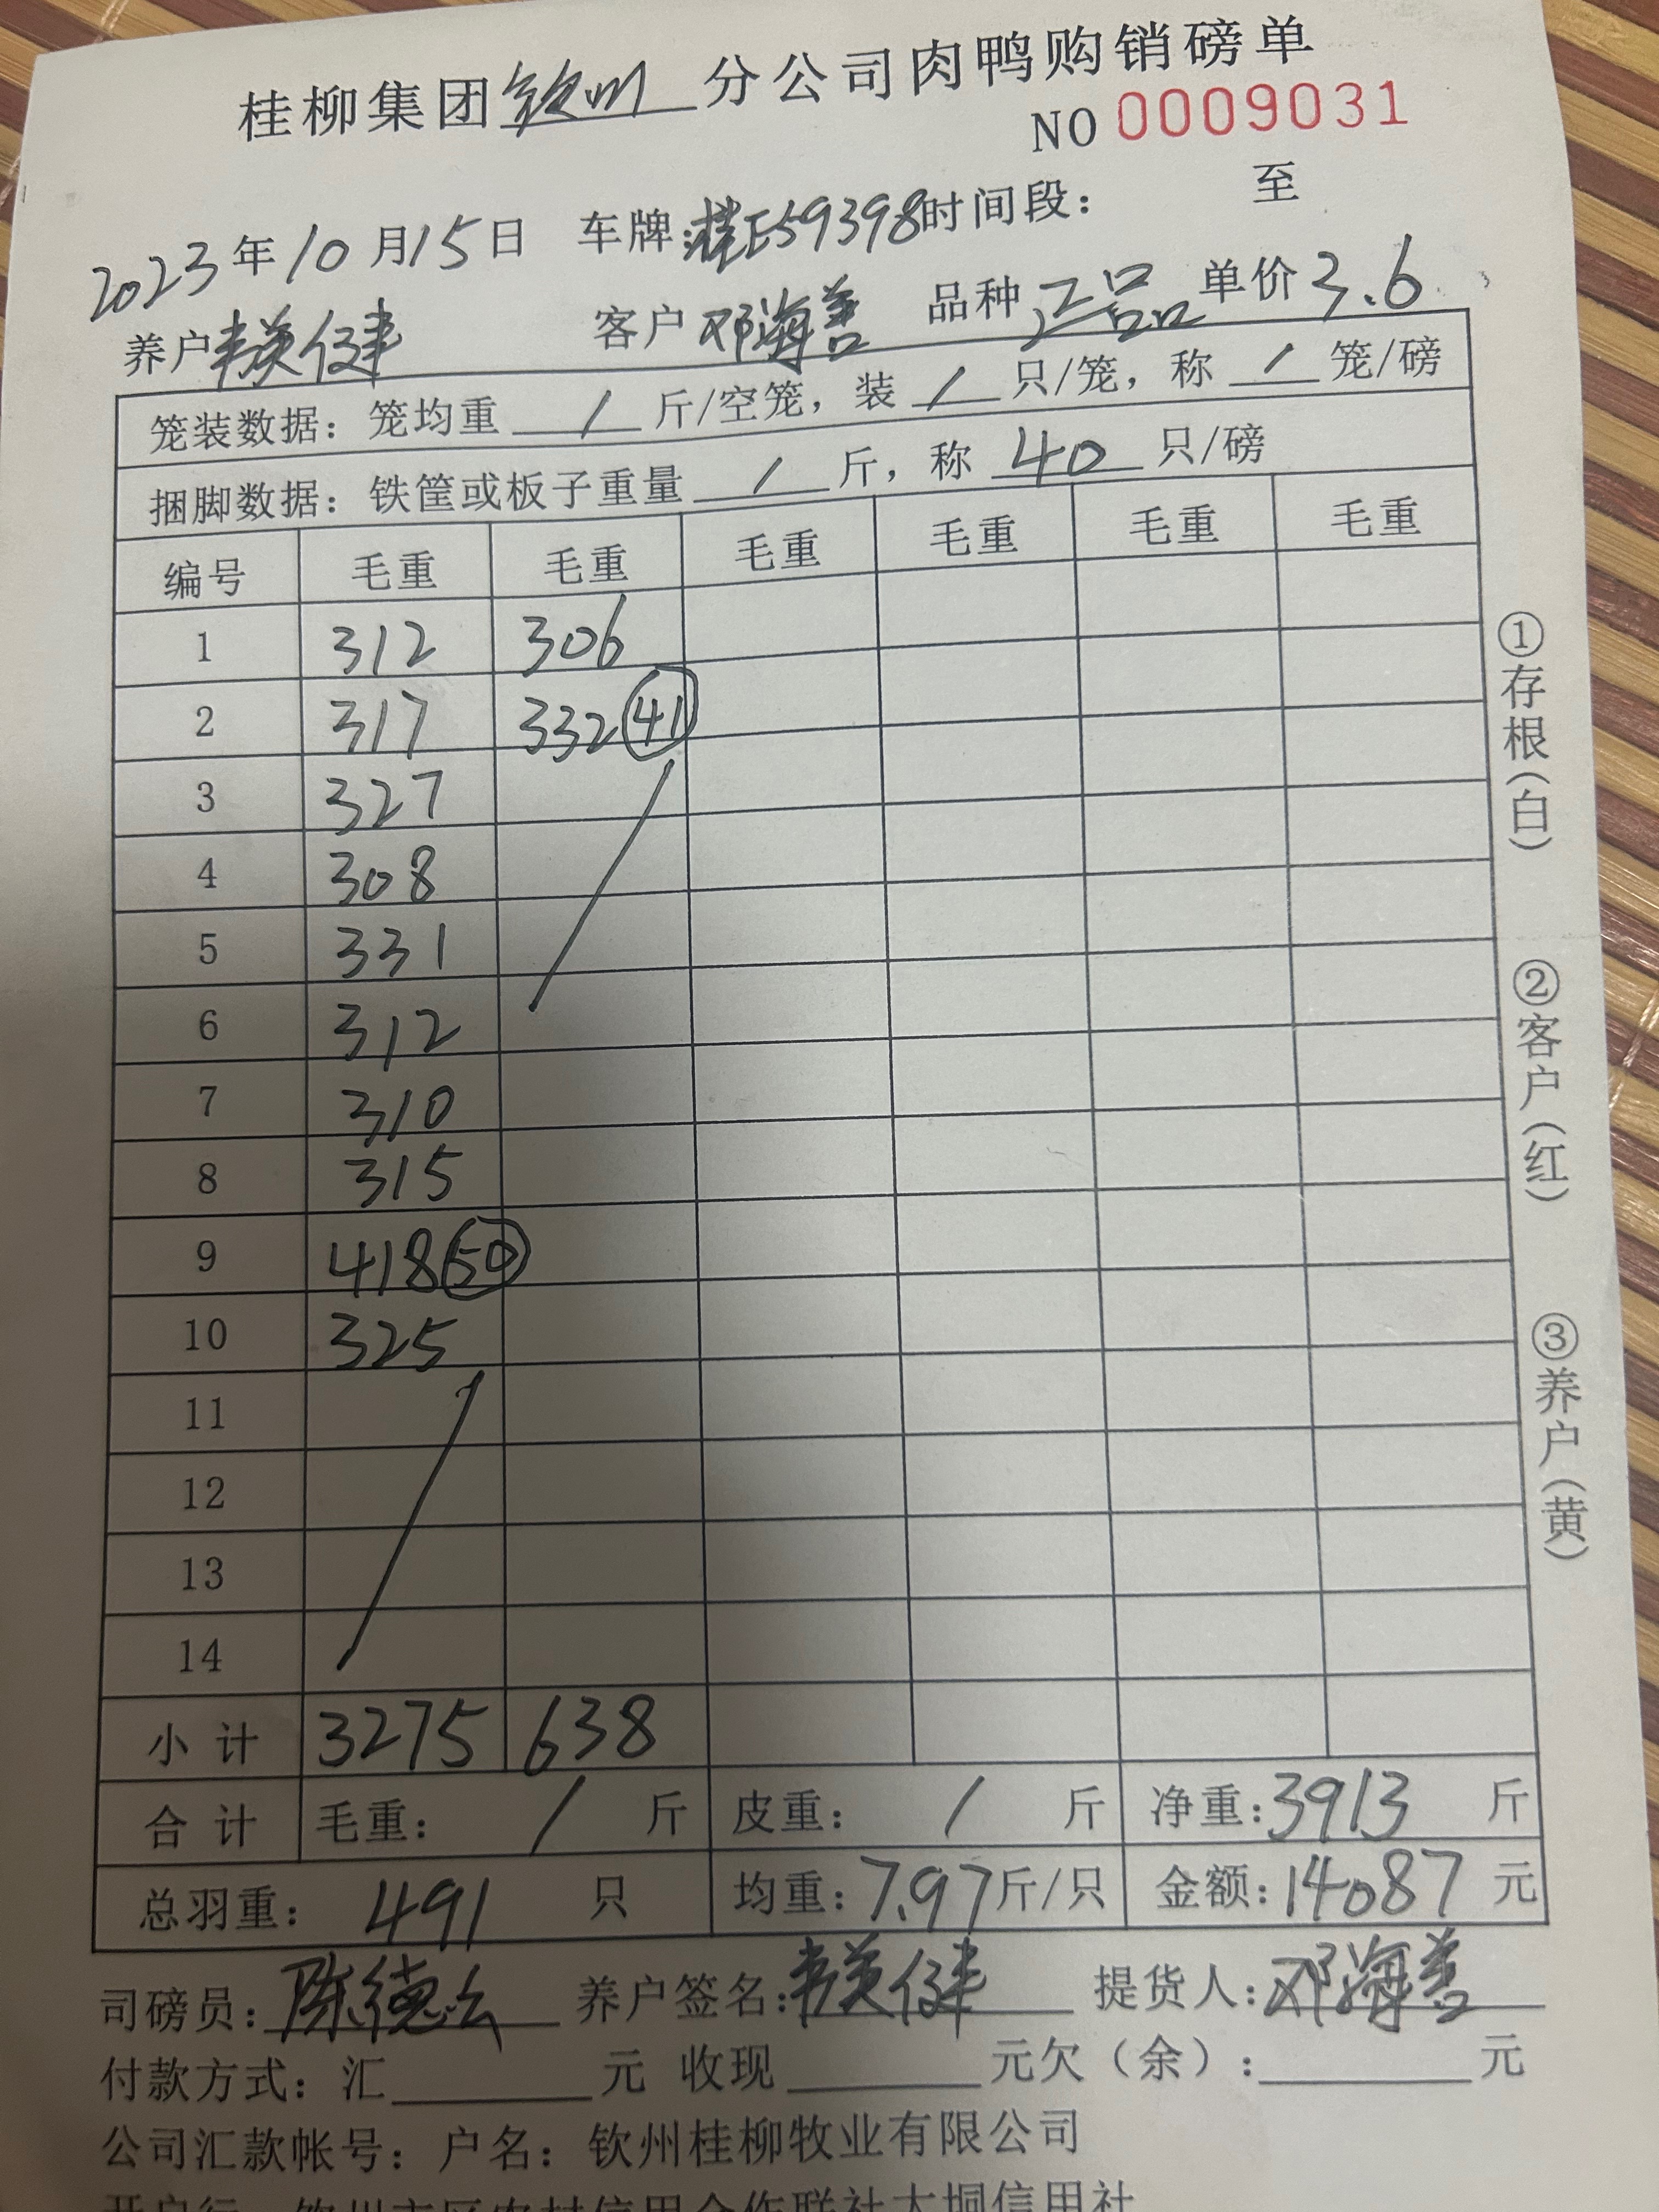 桂柳集团钦州分公司肉鸭购销磅单
NO 0009031
2023年10月15日 车牌:桂E59398时间段: 至
养户韦英健 客户邓海善 品种正品 单价3.6
笼装数据: 笼均重 / 斤/空笼, 装 / 只/笼, 称 / 笼/磅
捆脚数据: 铁筐或板子重量 / 斤, 称 40 只/磅
编号 毛重 毛重 毛重 毛重 毛重 毛重
1 312 306
2 317 332 41
3 327
4 308
5 331
6 312
7 310
8 315
9 418 50
10 325
11
12
13
14
小计 3275 638
合计 毛重: / 斤 皮重: / 斤 净重:3913 斤
总羽重: 491 只 均重:7.97斤/只 金额:14087元
司磅员:陈德么 养户签名:韦英健 提货人:邓海善
付款方式: 汇 元 收现 元欠(余): 元
公司汇款帐号: 户名: 钦州桂柳牧业有限公司
开户行: 钦州市区农村信用合作联社大垌信用社
①存根(白)
②客户(红)
③养户(黄)